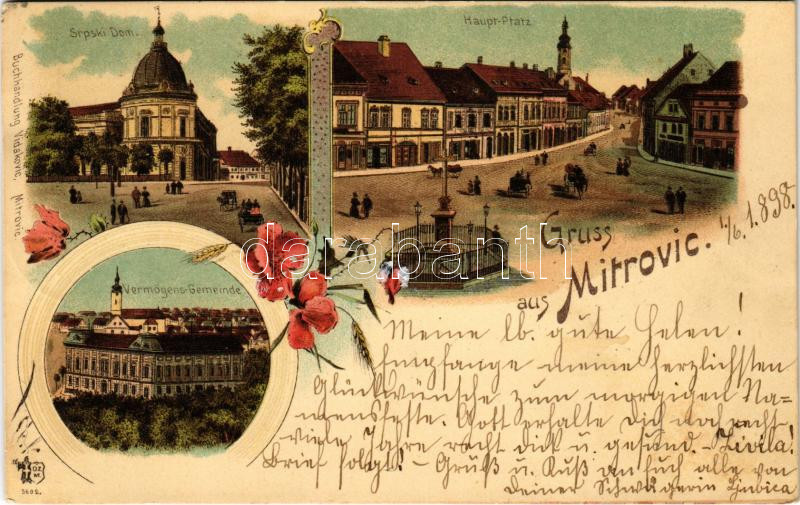 Srpski Dom.
Haupt-Platz
Buchhandlung Vidakovic, Mitrovic.
Vermögens-Gemeinde
Gruss
aus Mitrovic.
1/6. 1898.
darabanth
Meine lb. gute Helen!
Empfange meine herzlichsten
Glückwünsche zum morgigen Na-
mensfeste. Gott erhalte dich noch recht
viele Jahre recht dick u. gesund. - Živila!
Brief folgt! - Gruß u. Kuß an Euch alle von
Deiner Schwägerin Ljubica
5602.